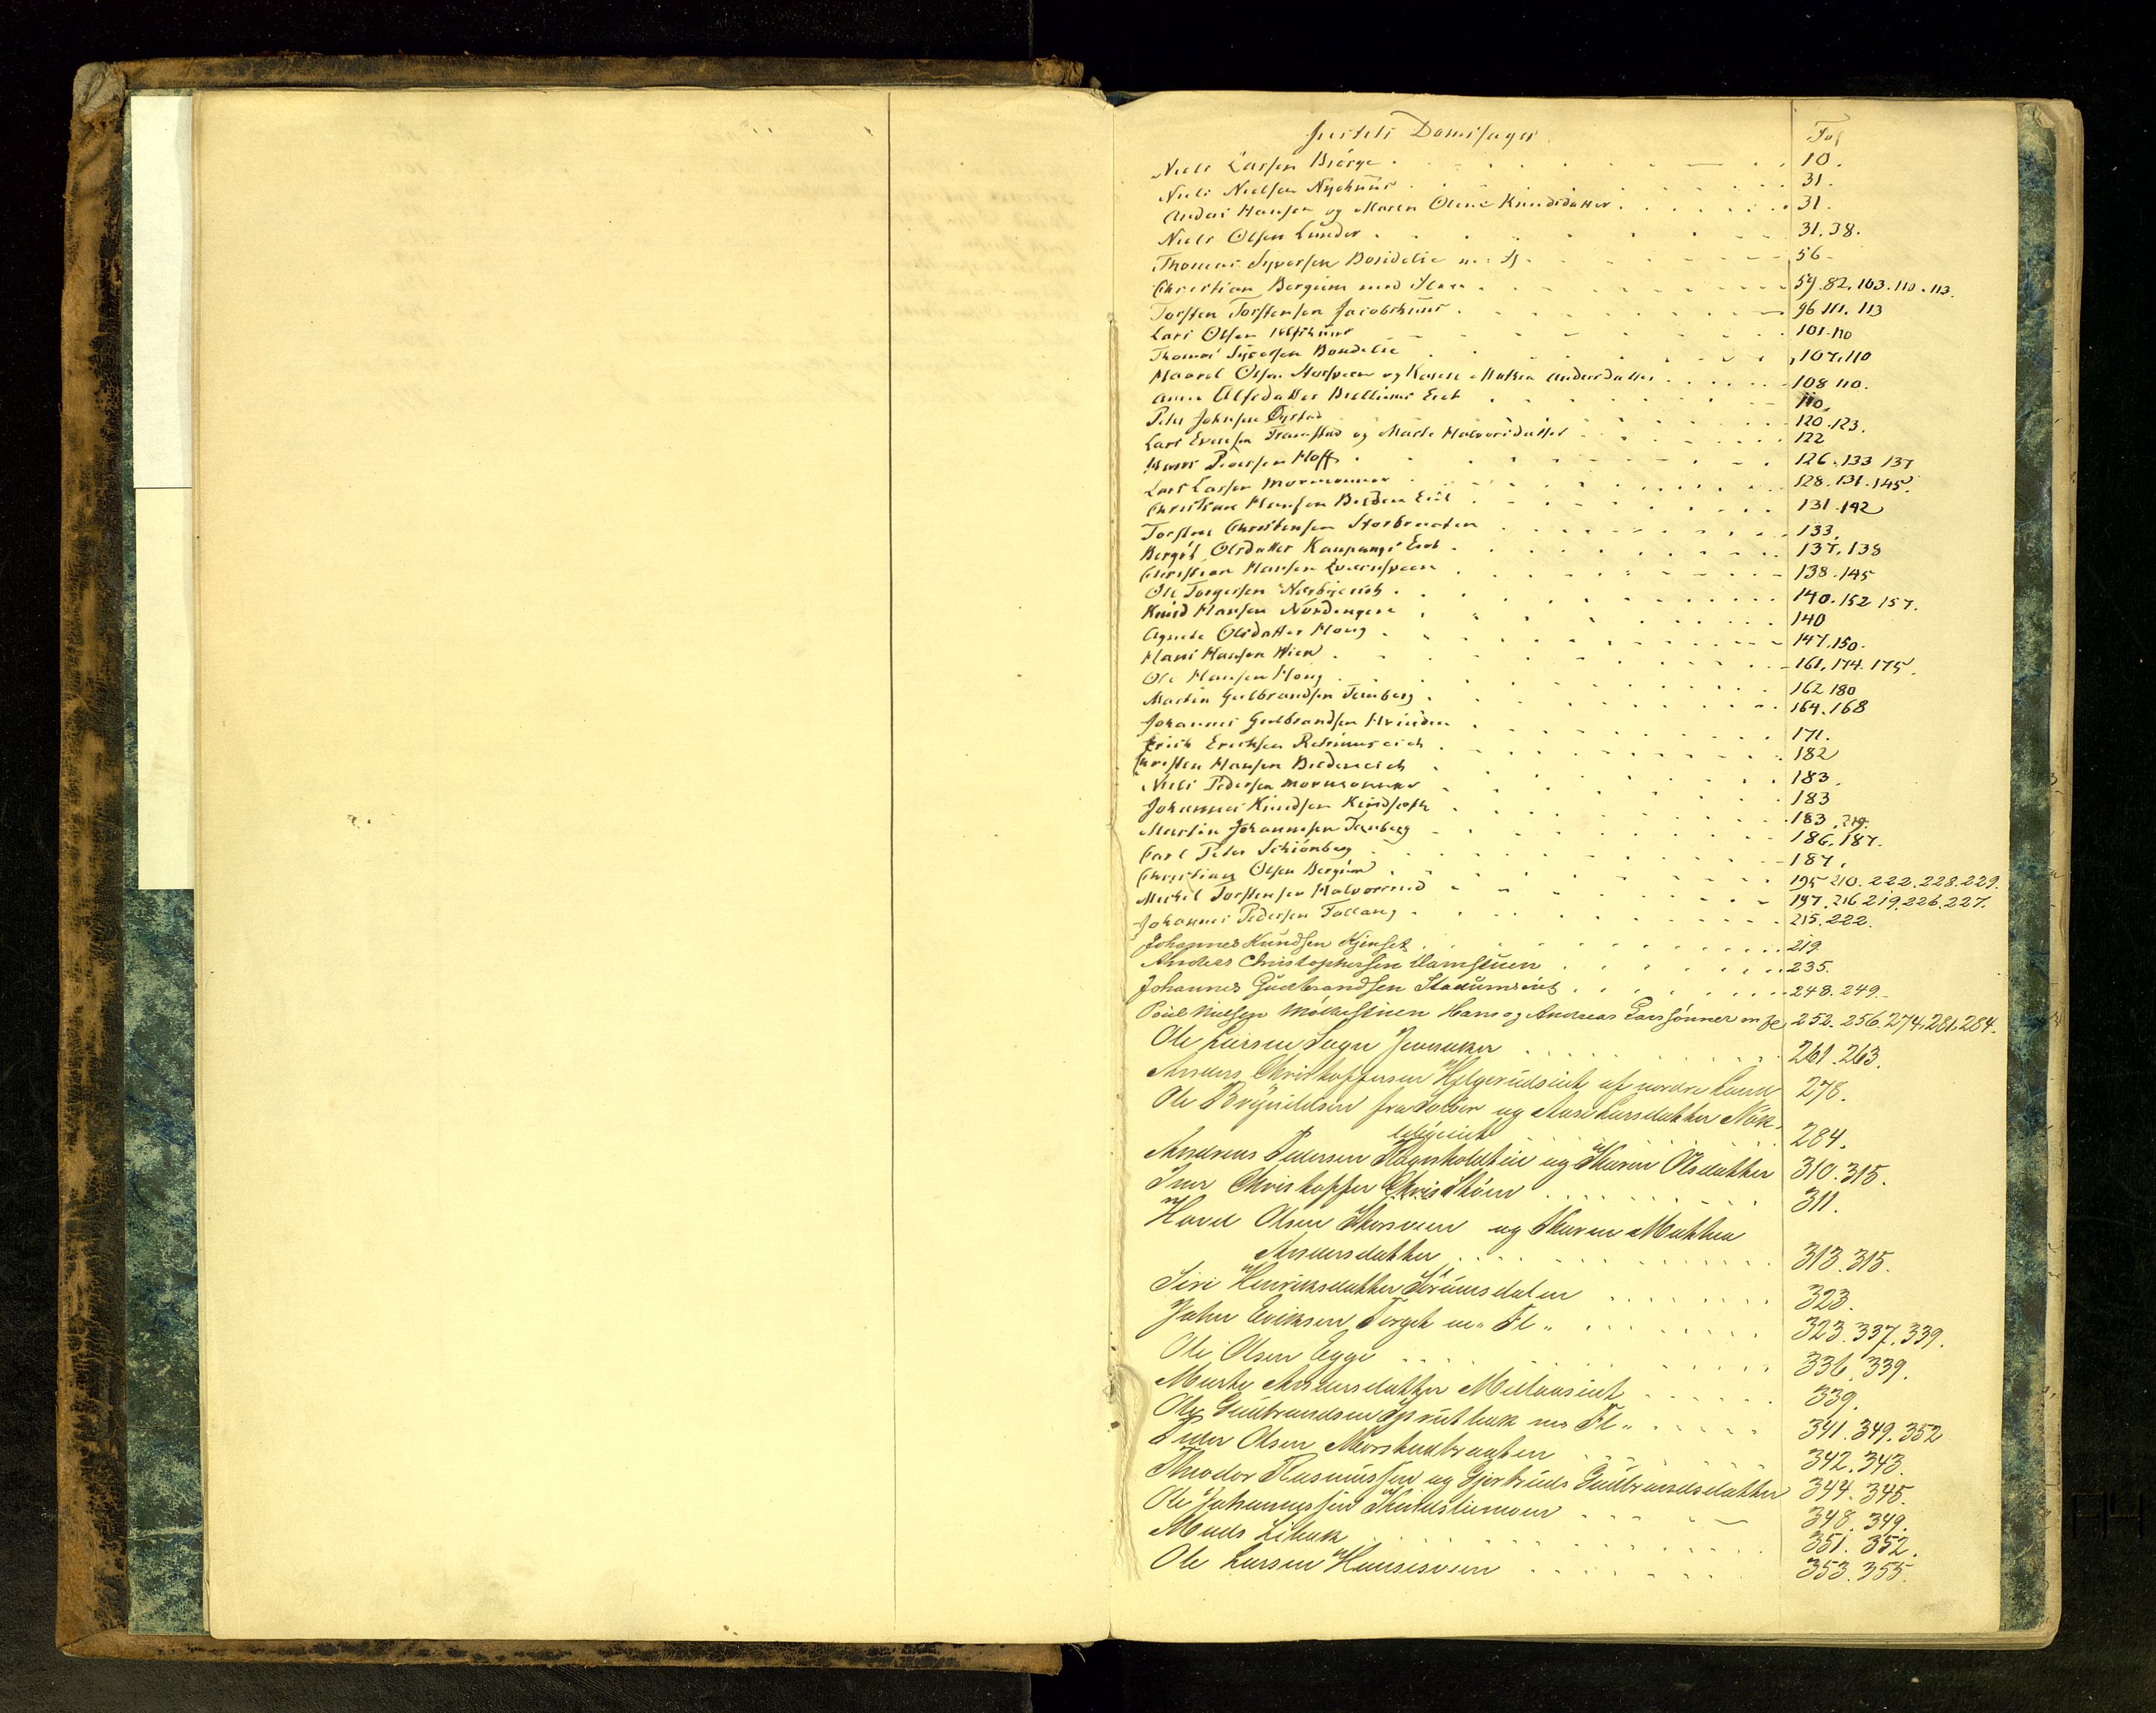 Justits Domssager. Fol
Niels Larsen Biørge 10.
Niels Nielsen Nyehuus 31.
Anders Hansen og Maren Olene Knudsdatter 31.
Niels Olsen Lunder 31. 38.
Thomas Syversen Bondelie m: fl. 56
Christian Bergum med flere 59. 82. 103. 110. 113.
Torsten Torstensen Jacobshuus 96. 111. 113
Lars Olsen 101. 110
Thomas Syversen Bondelie 107. 110
Haavel Olsen og Karen Mathea Andersdatter 108 110.
Anne Alfsdatter Eiet 110.
Peder Johnsen Øystad 120. 123.
Lars Evensen Framstad og Marte Halvorsdatter 122
Hans Pedersen Hoff 126. 133 137
Lars Larsen Mormonner 128. 131. 145.
Christian Hansen Belden Eiet 131. 142
Torsten Christensen Storbraaten 133.
Bergit Olsdatter Kaupangs Eiet 137. 138
Christian Hansen 138. 145
Ole Torgersen 140. 152 157.
Knud Hansen Nordengen 140
Agnete Olsdatter Houg 147. 150.
Hans Hansen Wien 161. 174. 175.
Ole Hansen Houg 162 180
Martin Gulbrandsen Temberg 164. 168
Johannes Gulbrandsen 171.
Erich Erichsen 182
Christen Hansen Beldeneieth 183.
Niels Pedersen Mormonner 183
Johannes Knudsen 183. 219.
Martin Johannesen Temberg 186. 187.
Carl Peter Schiønberg 187.
Christian Olsen Bergum 195 210. 222. 228. 229.
Mickel Torstensen Halvorsrud 197. 216. 219. 226. 227.
Johannes Pedersen Tollang 215. 222.
Johannes Knudsen 219.
Anders Christophersen 235.
Johannes Gudbrandsen 248. 249.
Poul Nielsen Møllestuen Hans og Andreas Larssønner m fl 252. 256. 274. 281. 284.
Ole Larsen Sogn Jevnaker 261. 263.
Anders Christoffersen Helgerudseiet af nordre Land 278.
Ole Brynildsen fra Solør og Aase Larsdatter Nøk-
lebyeiet 284.
Andreas Pedersen og Karen Olsdatter 310. 315.
Iver Christoffer 311.
Havel Olsen og Karen Mathea
Andersdatter 313. 315.
Siri Henriksdatter 323.
John Eriksen Torget m. Fl. 323. 337. 339.
Ole Olsen Egge 336. 339.
Marte Andersdatter 339.
Ole Gudbrandsen m. Fl. 341. 349. 352
Peder Olsen 342. 343.
Theodor Rasmussen og Gjertrud Gudbrandsdatter 344. 345.
Ole Johannessen 348. 349.
Mads Libak 351. 352.
Ole Larsen 353. 355.